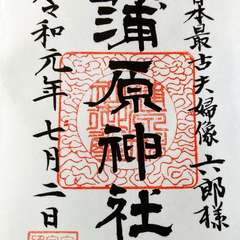 日本最古夫婦像 六郎様
蒲原神社
令和元年七月二日